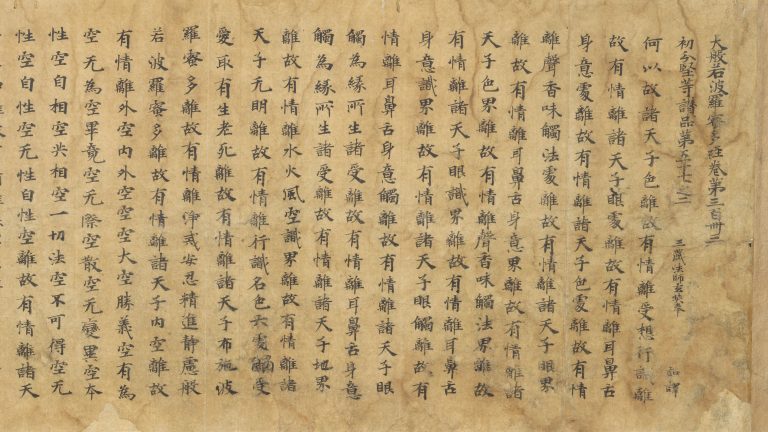 大般若波羅蜜多経卷第三百卌三
初分堅等讚品第五十七之二 三藏法師玄奘奉 詔譯
何以故諸天子色離故有情離受想行識離
故有情離諸天子眼處離故有情離耳鼻舌
身意處離故有情離諸天子色處離故有情
離聲香味觸法處離故有情離諸天子眼界
離故有情離耳鼻舌身意界離故有情離諸
天子色界離故有情離聲香味觸法界離故
有情離諸天子眼識界離故有情離耳鼻舌
身意識界離故有情離諸天子眼觸離故有
情離耳鼻舌身意觸離故有情離諸天子眼
觸為緣所生諸受離故有情離耳鼻舌身意
觸為緣所生諸受離故有情離諸天子地界
離故有情離水火風空識界離故有情離諸
天子无明離故有情離行識名色六處觸受
愛取有生老死離故有情離諸天子布施波
羅蜜多離故有情離淨戒安忍精進靜慮般
若波羅蜜多離故有情離諸天子內空離故
有情離外空內外空空空大空勝義空有為
空无為空畢竟空无際空散空无變異空本
性空自相空共相空一切法空不可得空无
性空自性空无性自性空離故有情離諸天